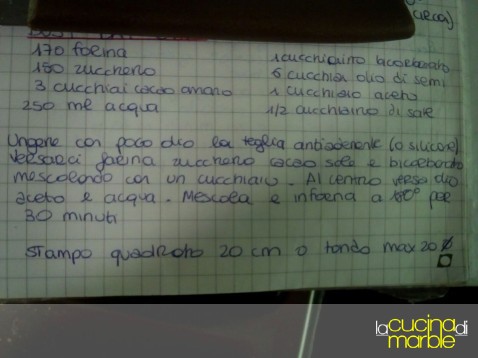 circa)
170 farina
150 zucchero
3 cucchiai cacao amaro
250 ml acqua
1 cucchiaino bicarbonato
6 cucchiai olio di semi
1 cucchiaio aceto
1/2 cucchiaino di sale
Ungere con poco olio la teglia antiaderente (o silicone)
versarci farina zucchero cacao sale e bicarbonato
mescolando con un cucchiaio. Al centro versa olio
aceto e acqua. Mescola e inforna a 180° per
30 minuti
Stampo quadrato 20 cm o tondo max 20 ø
la cucina di
marble